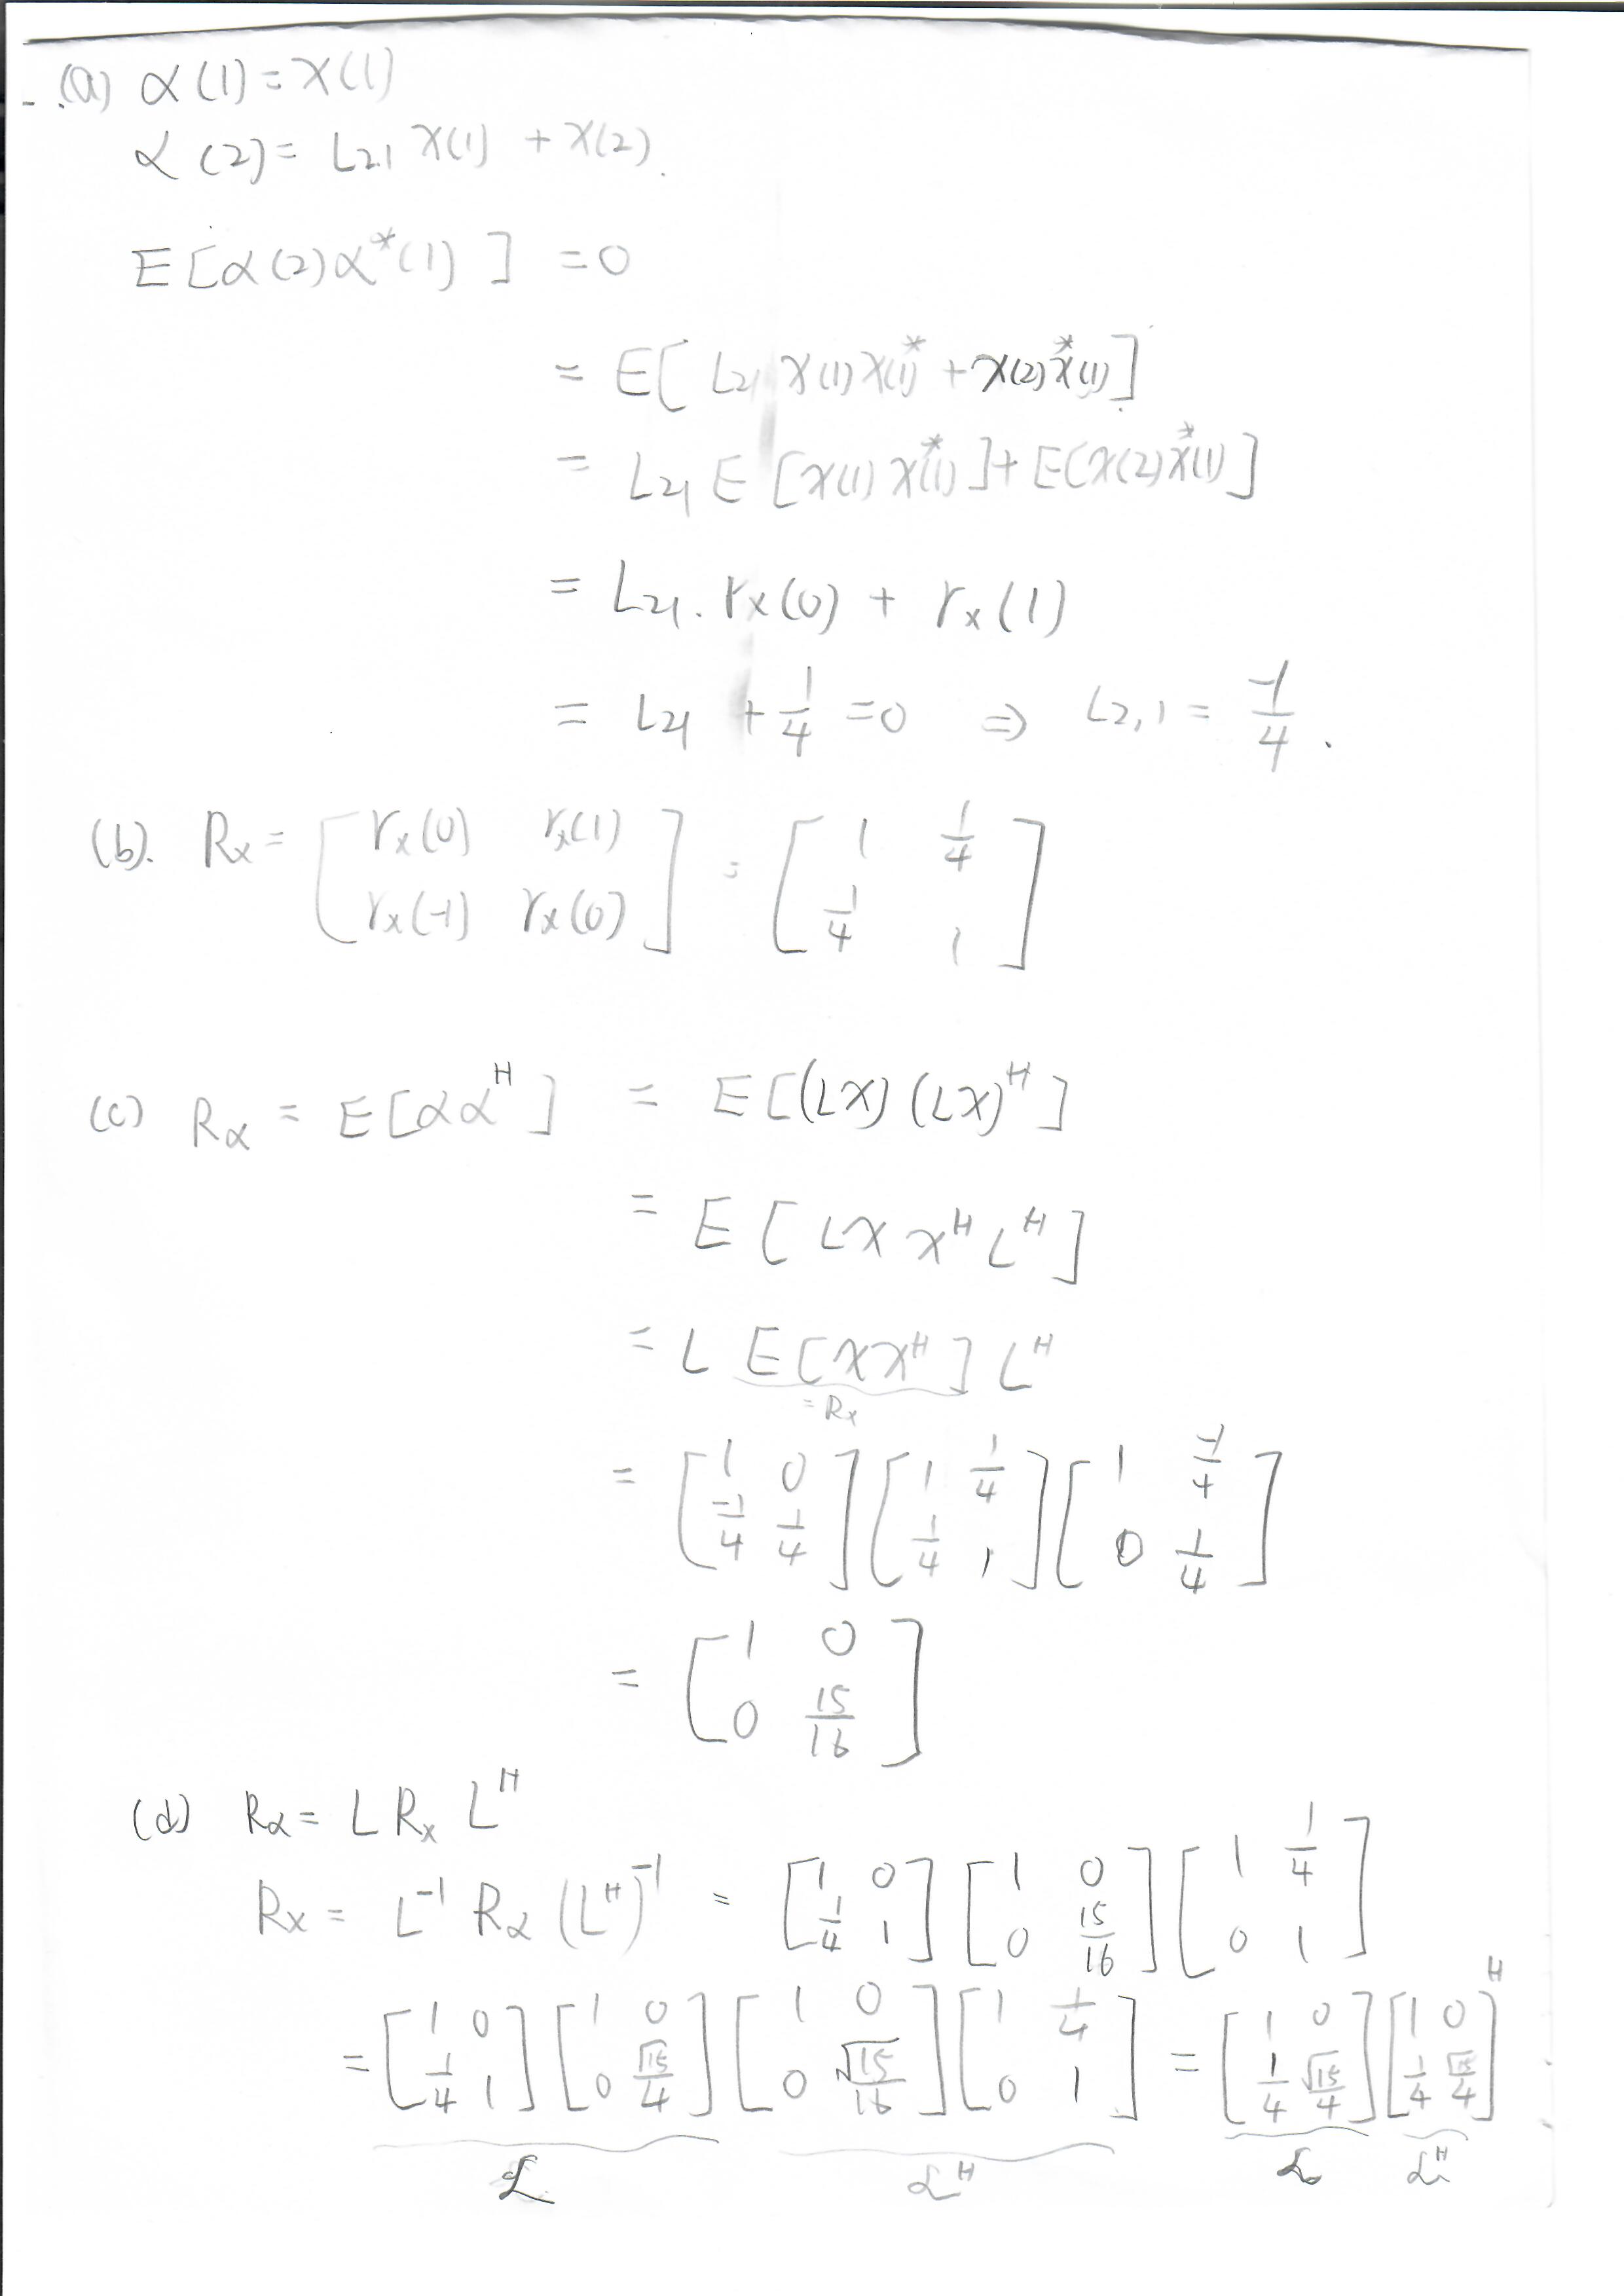 (a) α(1) = x(1)
α(2) = L2,1 x(1) + x(2).
E[α(2)α*(1)] = 0
= E[L21 x(1)x*(1) + x(2)x*(1)]
= L21 E[x(1)x*(1)] + E[x(2)x*(1)]
= L21. rx(0) + rx(1)
= L21 + 1/4 = 0 ⇒ L2,1 = -1/4.
(b). Rx = [rx(0) rx(1); rx(-1) rx(0)] = [1 1/4; 1/4 1]
(c) Rα = E[αα^H] = E[(Lx)(Lx)^H]
= E[Lx x^H L^H]
= L E[xx^H] L^H
= Rx
= [1 0; -1/4 1/4][1 1/4; 1/4 1][1 -1/4; 0 1/4]
= [1 0; 0 15/16]
(d) Rα = L Rx L^H
Rx = L^-1 Rα (L^H)^-1 = [1 0; 1/4 1][1 0; 0 15/16][1 1/4; 0 1]
= [1 0; 1/4 1][1 0; 0 √15/4][1 0; 0 √15/16][1 1/4; 0 1] = [1 0; 1/4 √15/4][1 0; 1/4 √15/4]^H
ℒ ℒ^H ℒ ℒ^H